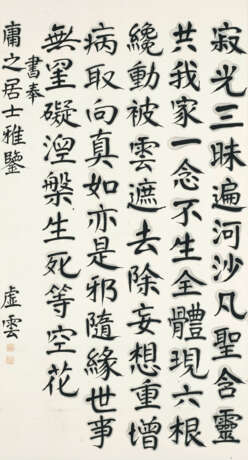 寂光三昧遍河沙凡聖含靈
共我家一念不生全體現六根
纔動被雲遮去除妄想重增
病取向真如亦是邪隨緣世事
無罣礙湼槃生死等空花
書奉
庸之居士雅鑒 虛雲